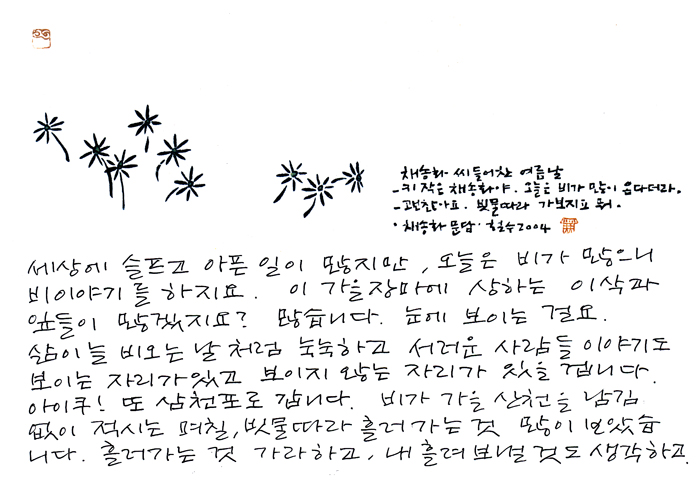 채송화 씨 들어찬 여름날
- 키 작은 채송화야. 오늘은 비가 많이 온다더라.
- 괜찮아요. 빗물따라 가보지요 뭐.
· 채송화 문답 · 철수2004
세상에 슬프고 아픈 일이 많지만, 오늘은 비가 많으니
비이야기를 하지요. 이 가을장마에 상하는 이삭과
잎들이 많겠지요? 많습니다. 눈에 보이는 걸요.
삶이 늘 비오는 날처럼 눅눅하고 서러운 사람들 이야기도
보이는 자리가 있고 보이지 않는 자리가 있을 겁니다.
아이쿠! 또 삼천포로 갑니다. 비가 가을 산천을 남김
없이 적시는 며칠, 빗물따라 흘러가는 것 많이 보았습
니다. 흘러가는 것 가라하고, 내 흘려보낼 것도 생각하고